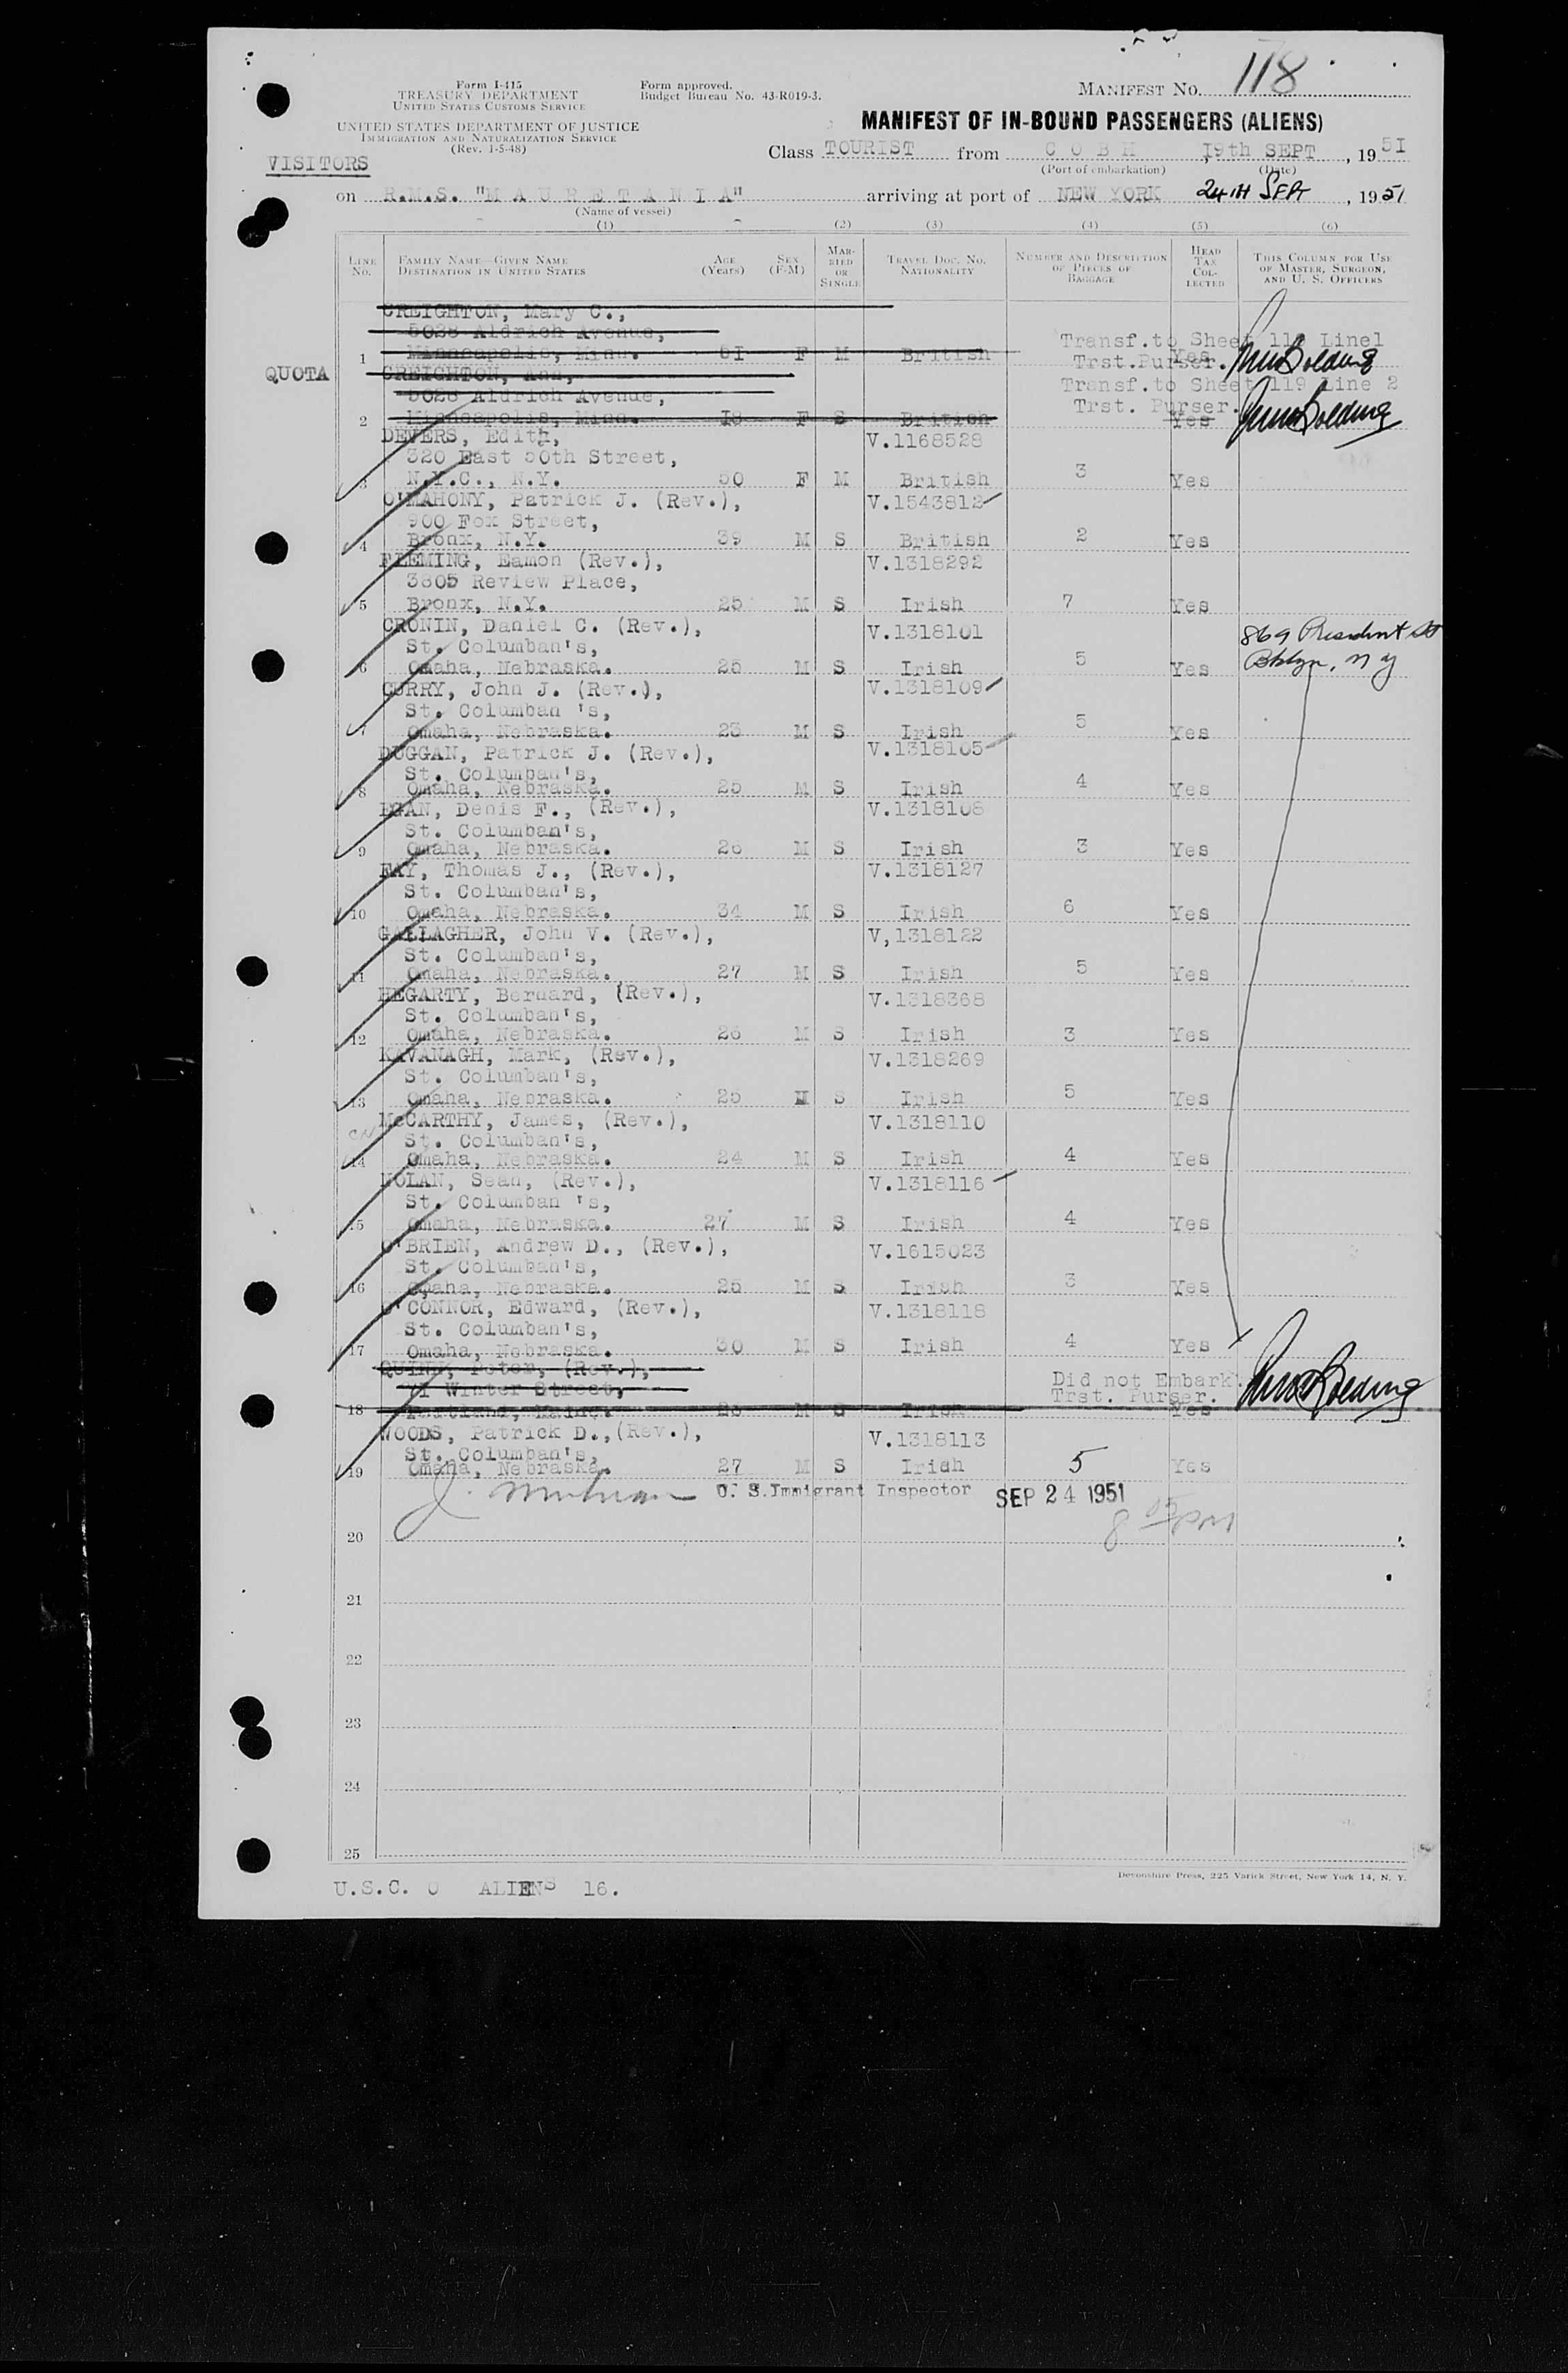 118
Form I-415
TREASURY DEPARTMENT
UNITED STATES CUSTOMS SERVICE
Form approved.
Budget Bureau No. 43-R019-3.
MANIFEST NO.
UNITED STATES DEPARTMENT OF JUSTICE
IMMIGRATION AND NATURALIZATION SERVICE
(Rev. 1-5-48)
MANIFEST OF IN-BOUND PASSENGERS (ALIENS)
VISITORS
Class TOURIST from C O B H , 19th SEPT , 1951
(Port of embarkation) (Date)
on R.M.S. "M A U R E T A N I A" arriving at port of NEW YORK 24TH SEPT , 1951
(Name of vessel)
(1) (2) (3) (4) (5) (6)
LINE NO. FAMILY NAME—GIVEN NAME DESTINATION IN UNITED STATES AGE (Years) SEX (F-M) MARRIED OR SINGLE TRAVEL DOC. NO. NATIONALITY NUMBER AND DESCRIPTION OF PIECES OF BAGGAGE HEAD TAX COLLECTED THIS COLUMN FOR USE OF MASTER, SURGEON, AND U. S. OFFICERS
CREIGHTON, Mary C.,
5028 Aldrich Avenue, Transf.to Sheet 119 Line1
1 Minneapolis, Minn. 51 F M British Trst.Purser. Yes
QUOTA CREIGHTON, Ann,
5028 Aldrich Avenue, Transf.to Sheet 119 Line 2
2 Minneapolis, Minn. 18 F S British Trst. Purser. Yes
DEVERS, Edith, V.1168528
320 East 50th Street,
3 N.Y.C., N.Y. 50 F M British 3 Yes
O'MAHONY, Patrick J. (Rev.), V.1543812
900 Fox Street,
4 Bronx, N.Y. 39 M S British 2 Yes
FLEMING, Eamon (Rev.), V.1318292
3805 Review Place,
5 Bronx, N.Y. 25 M S Irish 7 Yes
CRONIN, Daniel C. (Rev.), V.1318101 869 President St
St. Columban's,
6 Omaha, Nebraska. 25 M S Irish 5 Yes Bklyn, N Y
CURRY, John J. (Rev.), V.1318109
St. Columban 's,
7 Omaha, Nebraska. 23 M S Irish 5 Yes
DUGGAN, Patrick J. (Rev.), V.1318105
St. Columban's,
8 Omaha, Nebraska. 25 M S Irish 4 Yes
EGAN, Denis F., (Rev.), V.1318108
St. Columban's,
9 Omaha, Nebraska. 26 M S Irish 3 Yes
FAY, Thomas J., (Rev.), V.1318127
St. Columban's,
10 Omaha, Nebraska. 34 M S Irish 6 Yes
GALLAGHER, John V. (Rev.), V,1318122
St. Columban's,
11 Omaha, Nebraska. 27 M S Irish 5 Yes
HEGARTY, Bernard, (Rev.), V.1318368
St. Columban's,
12 Omaha, Nebraska. 26 M S Irish 3 Yes
KAVANAGH, Mark, (Rev.), V.1318269
St. Columban's,
13 Omaha, Nebraska. 25 M S Irish 5 Yes
McCARTHY, James, (Rev.), V.1318110
St. Columban's,
14 Omaha, Nebraska. 24 M S Irish 4 Yes
NOLAN, Sean, (Rev.), V.1318116
St. Columban 's,
15 Omaha, Nebraska. 27 M S Irish 4 Yes
O'BRIEN, Andrew D., (Rev.), V.1615023
St. Columban's,
16 Omaha, Nebraska. 25 M S Irish 3 Yes
O'CONNOR, Edward, (Rev.), V.1318118
St. Columban's,
17 Omaha, Nebraska. 30 M S Irish 4 Yes
QUINN, Peter, (Rev.),
71 Winter Street, Did not Embark.
18 Portland, Maine. M S Irish Trst. Purser. Yes
WOODS, Patrick D.,(Rev.), V.1318113
St. Columban's,
19 Omaha, Nebraska. 27 M S Irish 5 Yes
U. S.Immigrant Inspector SEP 24 1951
20
21
22
23
24
25
Devonshire Press, 225 Varick Street, New York 14, N. Y.
U.S.C. 0 ALIENS 16.